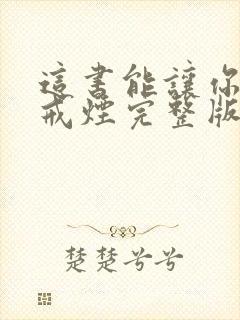 這書能讓你
戒煙完整版
楚楚兮兮